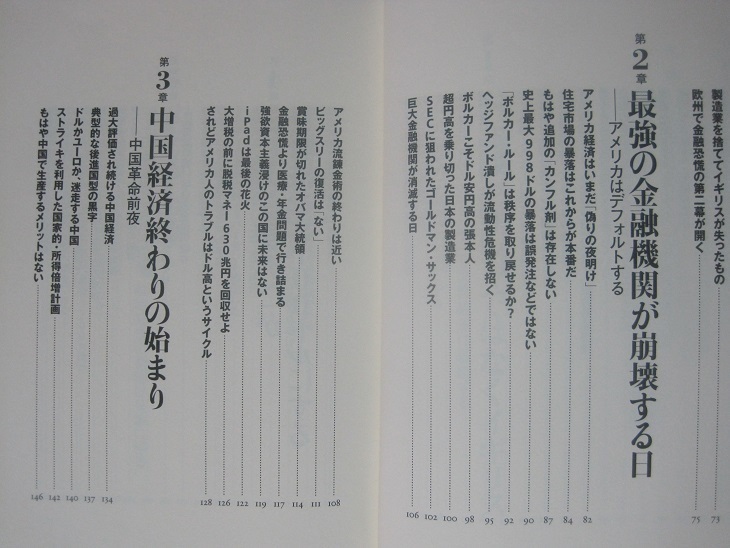 製造業を捨ててイギリスが失ったもの 73
欧州で金融恐慌の第二幕が開く 75
第2章 最強の金融機関が崩壊する日
──アメリカはデフォルトする
アメリカ経済はいまだ「偽りの夜明け」 82
住宅市場の暴落はこれからが本番だ 84
もはや追加の「カンフル剤」は存在しない 87
史上最大998ドルの暴落は誤発注などではない 90
「ボルカー・ルール」は秩序を取り戻せるか? 92
ヘッジファンド潰しが流動性危機を招く 95
ボルカーこそドル安円高の張本人 98
超円高を乗り切った日本の製造業 100
SECに狙われたゴールドマン・サックス 102
巨大金融機関が消滅する日 106
アメリカ流錬金術の終わりは近い 108
ビッグスリーの復活は「ない」 111
賞味期限が切れたオバマ大統領 114
金融恐慌より医療・年金問題で行き詰まる 117
強欲資本主義浸けのこの国に未来はない 119
iPadは最後の花火 122
大増税の前に脱税マネー630兆円を回収せよ 126
されどアメリカ人のトラブルはドル高というサイクル 128
第3章 中国経済終わりの始まり
──中国革命前夜
過大評価され続ける中国経済 134
典型的な後進国型の黒字 137
ドルかユーロか、迷走する中国 140
ストライキを利用した国家的・所得倍増計画 142
もはや中国で生産するメリットはない 146